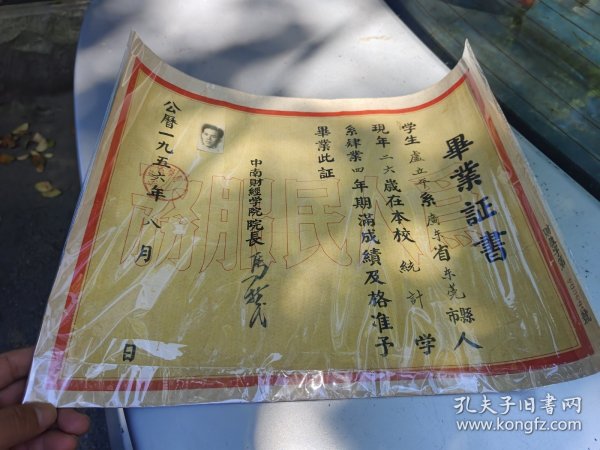 畢業証書
學生盧立平系廣东省东莞縣市人
現年二六歲在本校統計學
系肄業四年期滿成績及格准予
畢業此証
中南財經學院院長
公曆一九五六年八月 日
為人民服務
孔夫子旧书网
www.kongfz.com